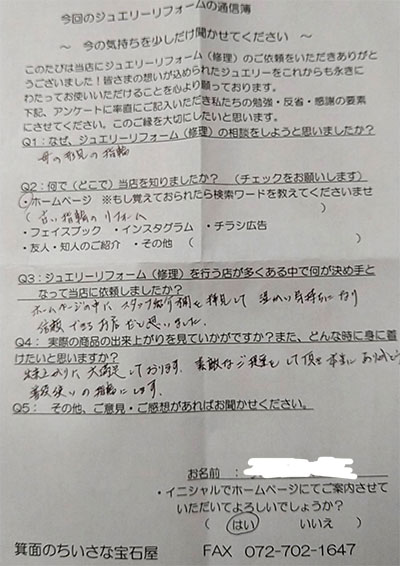 今回のジュエリーリフォームの通信簿
～ 今の気持ちを少しだけ聞かせてください ～
このたびは当店にジュエリーリフォーム（修理）のご依頼をいただきありがと
うございました！皆さまの想いが込められたジュエリーをこれからも永きに
わたってお使いいただけることを心より願っております。
下記、アンケートに率直にご記入いただき私たちの勉強・反省・感謝の要素
にさせてください。このご縁を大切にしたいと思います。
Q1：なぜ、ジュエリーリフォーム（修理）の相談をしようと思いましたか？
母の形見の指輪
Q2：何で（どこで）当店を知りましたか？ （チェックをお願いします）
・ホームページ ※もし覚えておられたら検索ワードを教えてくださいませ
（古い指輪のリフォーム ）
・フェイスブック ・インスタグラム ・チラシ広告
・友人・知人のご紹介 ・その他（ ）
Q3：ジュエリーリフォーム（修理）を行う店が多くある中で何が決め手と
なって当店に依頼しましたか？
ホームページの中に、スタッフ紹介欄を拝見して 温かい気持ちになり
信頼できるお店だと思いました。
Q4： 実際の商品の出来上がりを見ていかがですか？また、どんな時に身に着
けたいと思いますか？
出来上がりに大満足しております。素敵なご提案をして頂き本当にありがとう
普段使いの指輪にします。
Q5： その他、ご意見・ご感想があればお聞かせください。
お名前：
・イニシャルでホームページにてご案内させて
いただいてよろしいでしょうか？
（ はい いいえ ）
箕面のちいさな宝石屋 FAX 072-702-1647